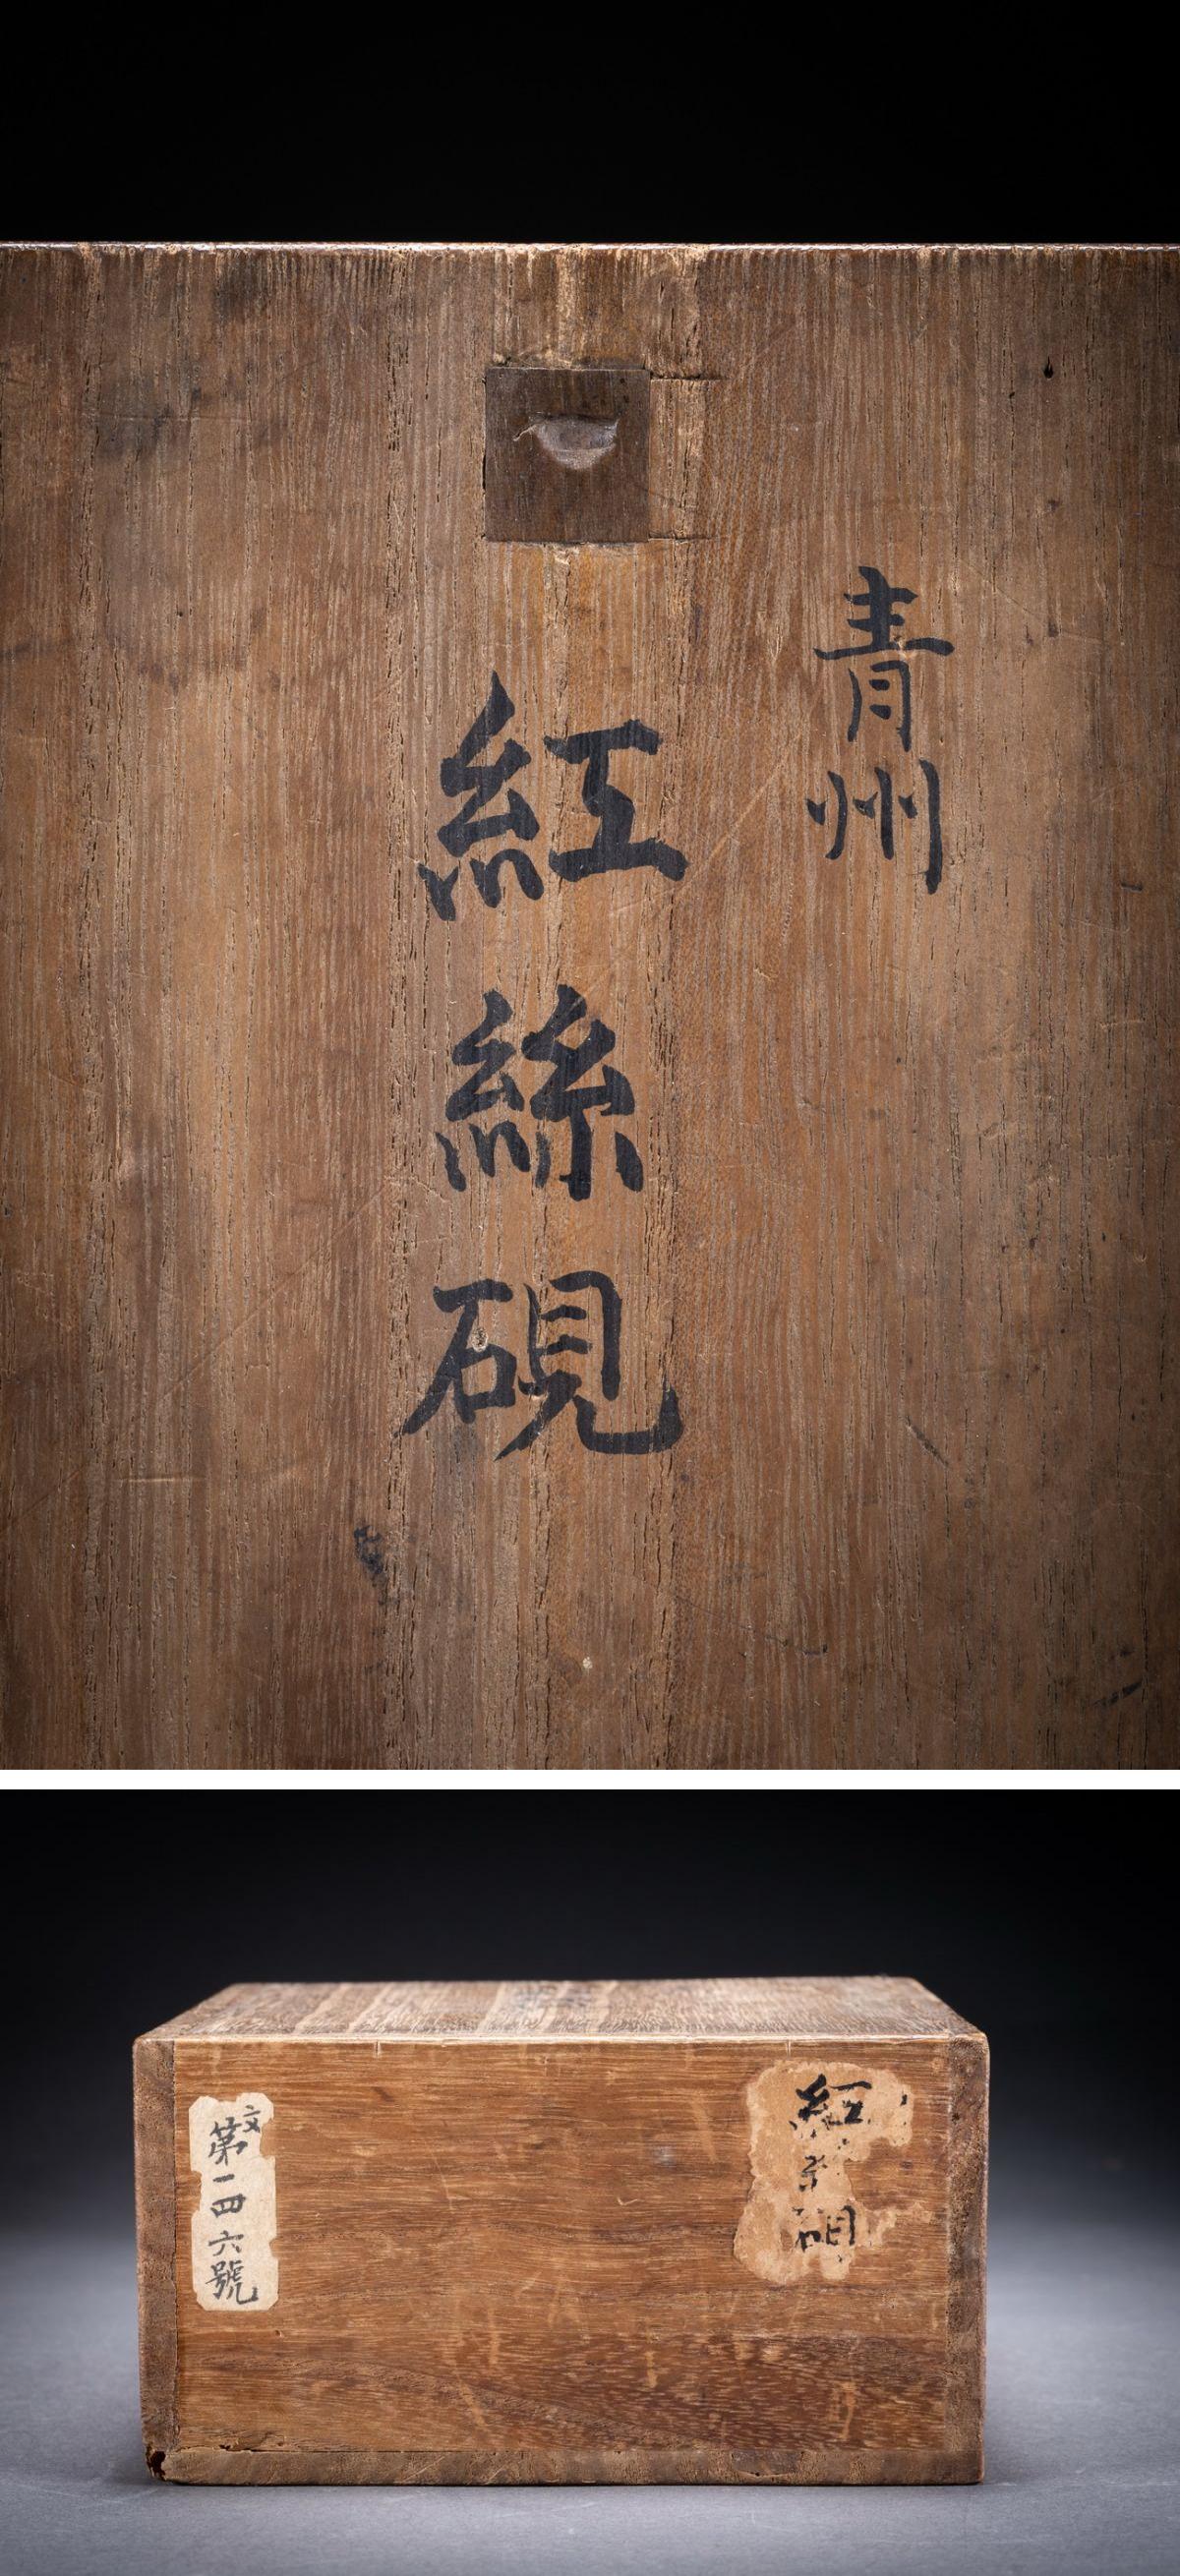 青州
紅絲硯
紅
硯
文
第一四六號